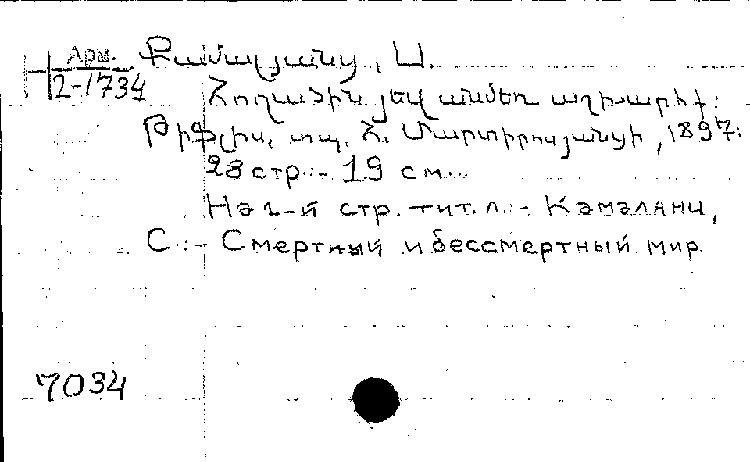 Арм.
2-1734
Քամալյանց, Ս.
Հողածին յեվ անմեռ աշխարհք:
Թիֆլիս, տպ. Հ. Մարտիրոսյանցի, 1897:
28 стр.- 19 см.
На 2-й стр. тит. л.:- Камалянц,
С.:- Смертный и бессмертный мир
7034